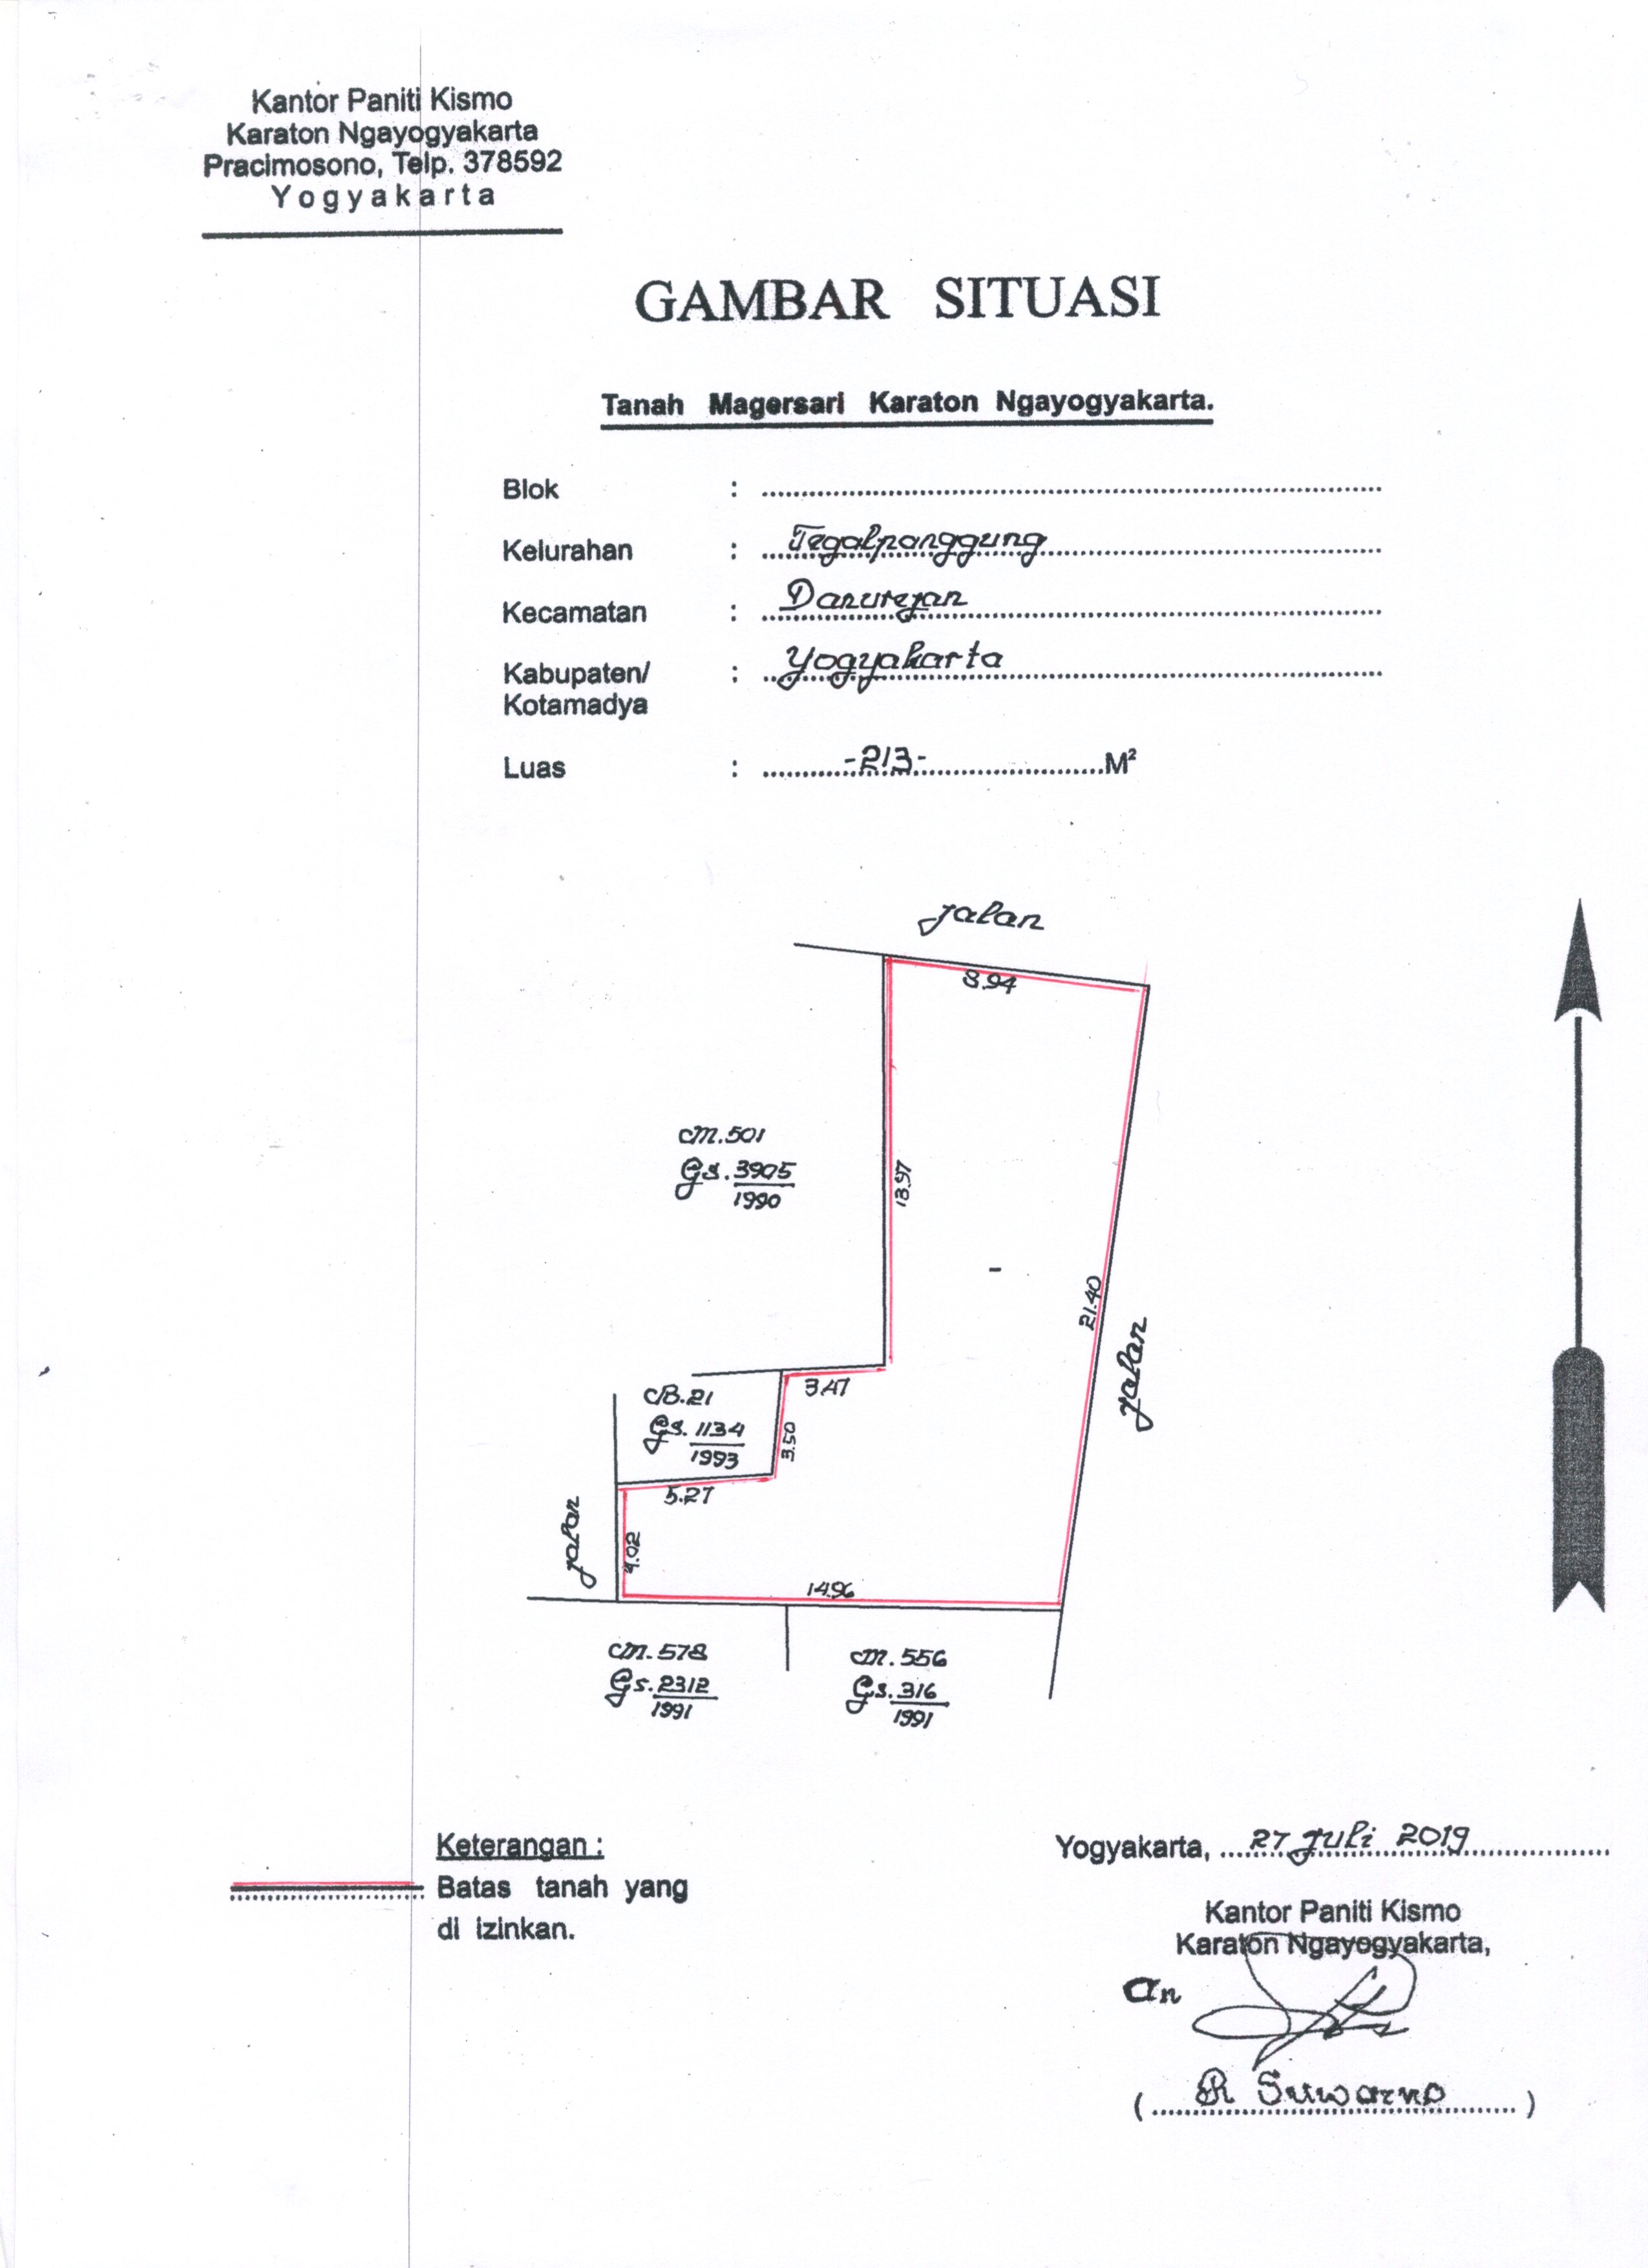 Kantor Paniti Kismo
Karaton Ngayogyakarta
Pracimosono, Telp. 378592
Yogyakarta
GAMBAR SITUASI
Tanah Magersari Karaton Ngayogyakarta.
Blok :
Kelurahan : Tegalpanggung
Kecamatan : Danurejan
Kabupaten/ : Yogyakarta
Kotamadya
Luas : -213- M²
jalan
8.94
M.501
Gs. 3905
1990
13.97
21.40
jalan
3.47
B.21
Gs. 1134
1993
3.50
5.27
jalan
4.02
14.96
M.578
Gs. 2312
1991
M.556
Gs. 316
1991
Keterangan :
Batas tanah yang
di izinkan.
Yogyakarta, 27 Juli 2019
Kantor Paniti Kismo
Karaton Ngayogyakarta,
An
( R Suwarno )